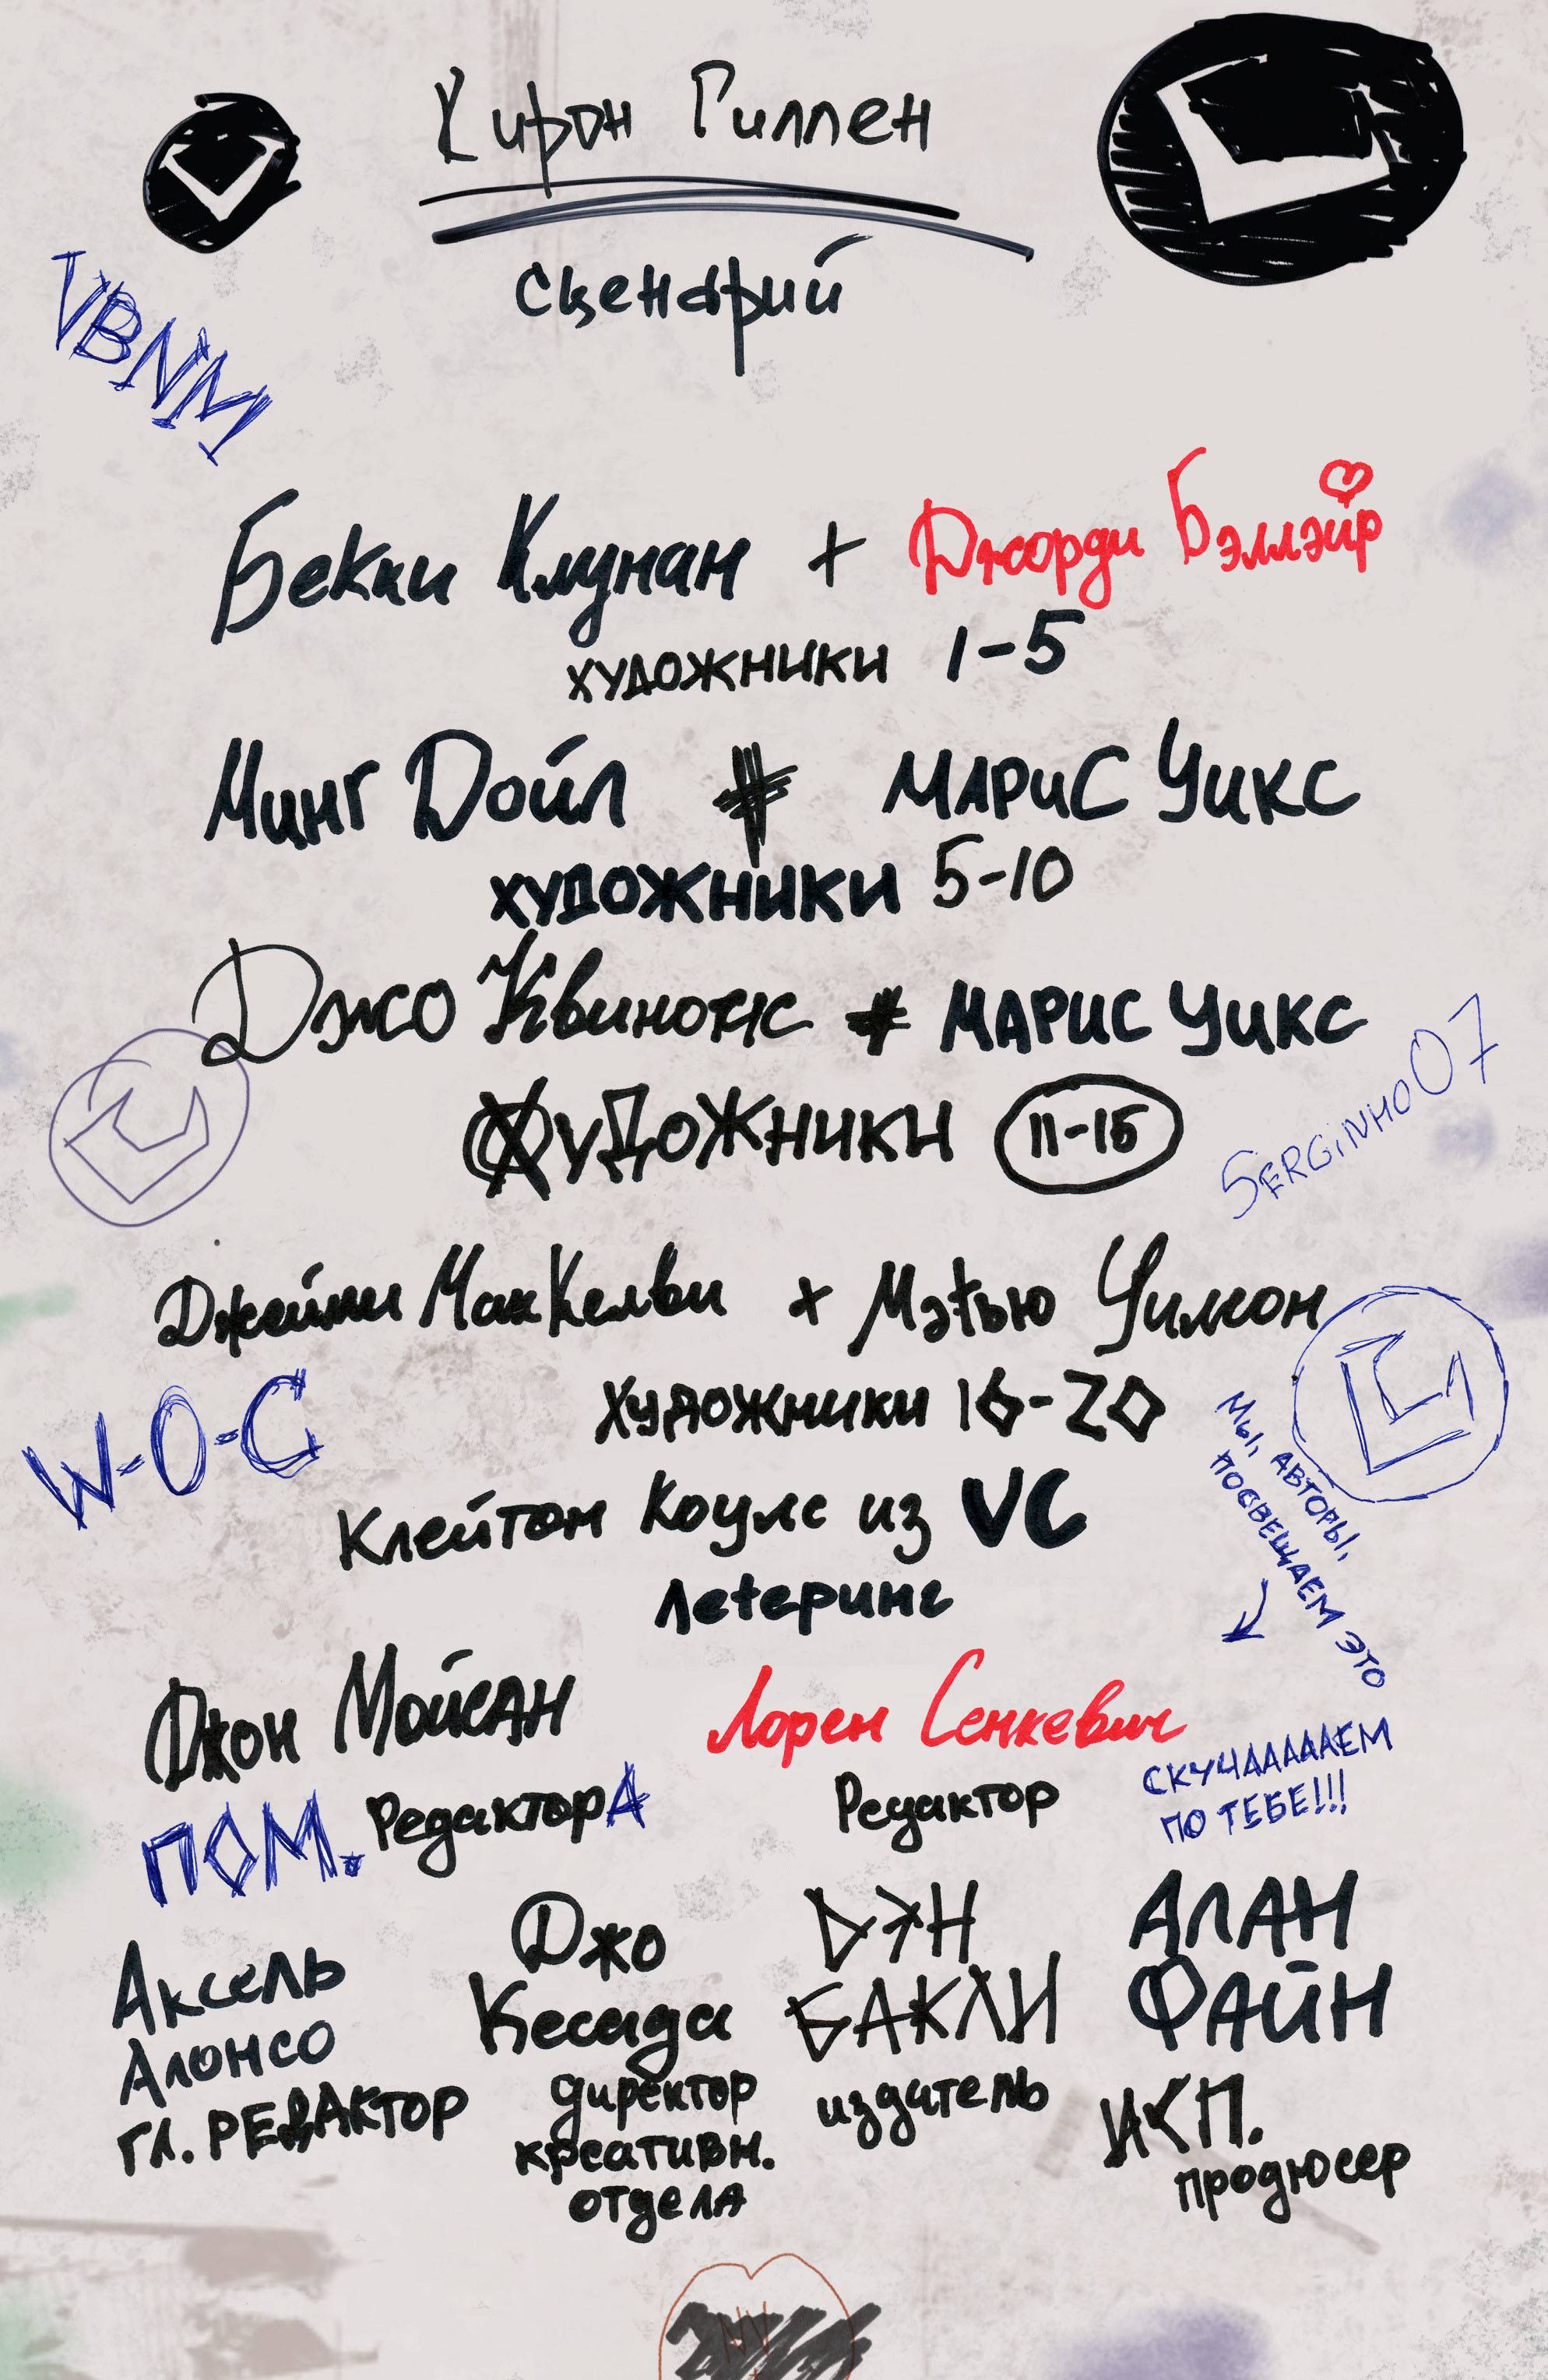 Кирон Гиллен
сценарий
VBNM
Бекки Клунан + Джорди Бэллэйр
художники 1-5
Минг Дойл + Марис Уикс
художники 5-10
Джо Квинонс + Марис Уикс
художники 11-15
SERGiNHO07
Джейми МакКелви + Мэтью Уилсон
художники 16-20
W-O-C
Мы, авторы,
посвещаем это
Клейтон Коулс из VC
летеринг
Джон Мойсан
ПОМ. РедакторА
Лорен Сенкевич
Редактор
СКУЧАААААЕМ
ПО ТЕБЕ!!!
Аксель
Алонсо
гл. РЕДАКТОР
Джо
Кесада
директор
креативн.
отдела
ДЭН
БАКЛИ
издатель
АЛАН
ФАЙН
ИСП.
продюсер